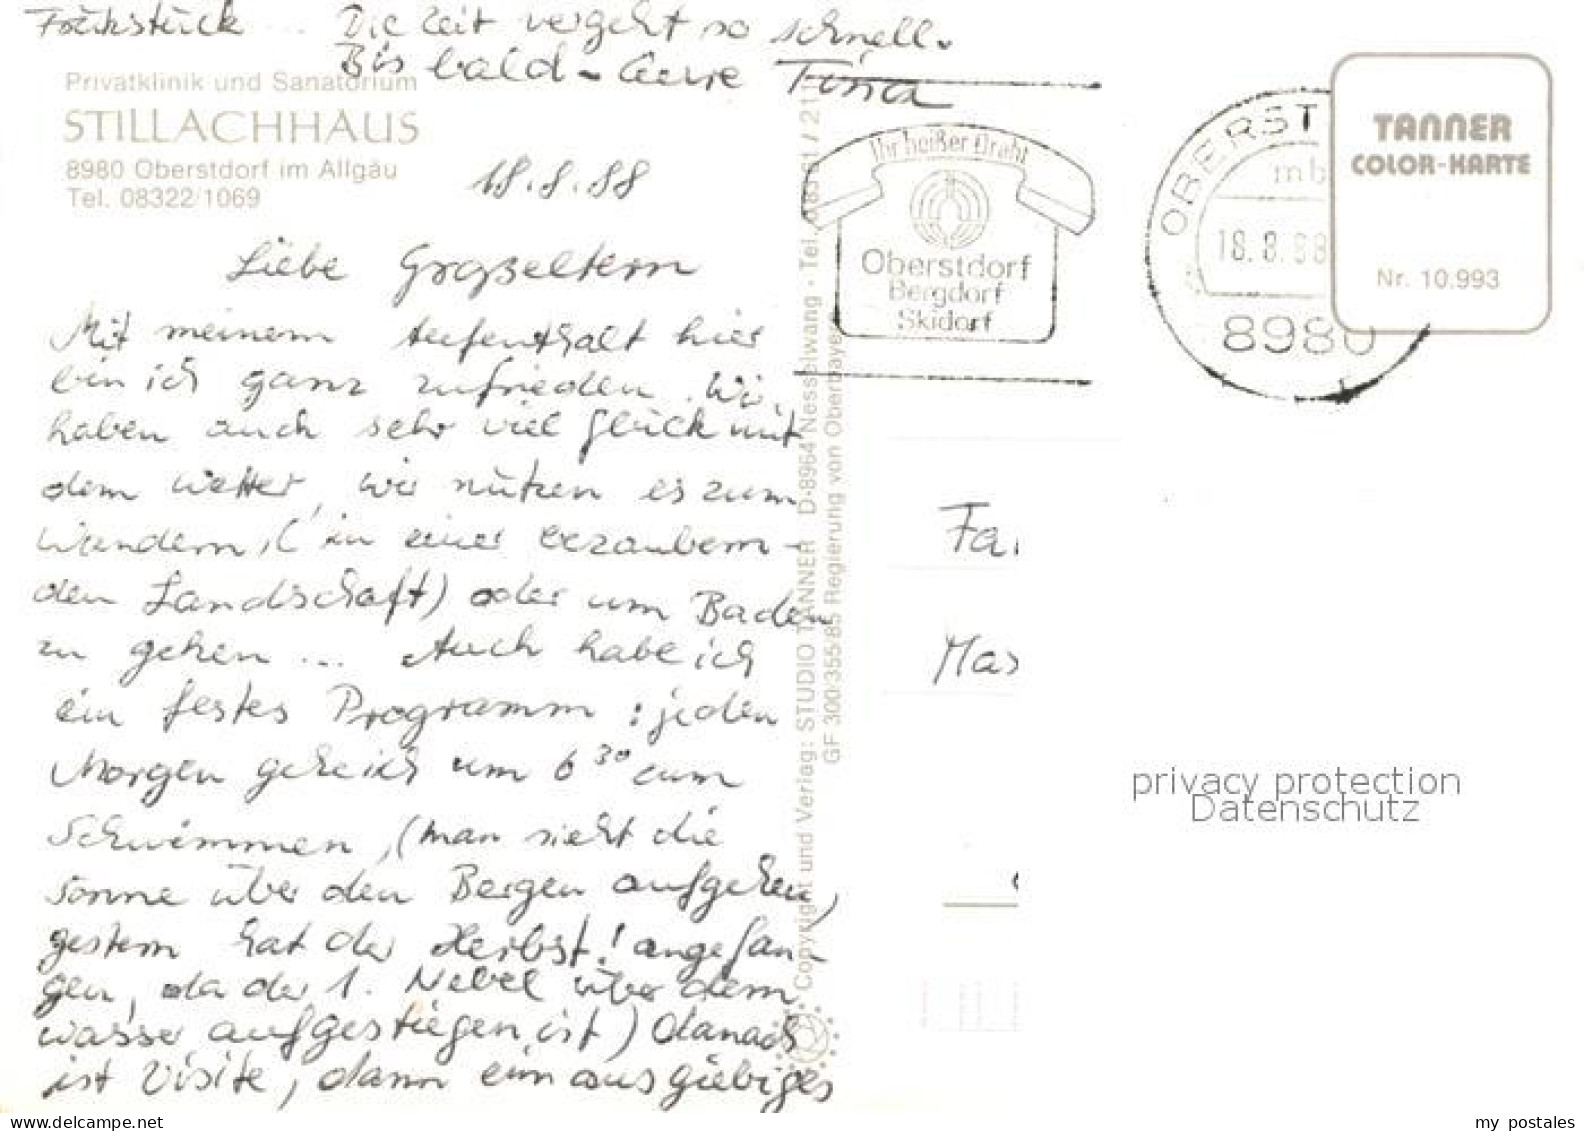 Frühstück ... Die Zeit vergeht so schnell.
Bis bald - Eure Tina
Privatklinik und Sanatorium
STILLACHHAUS
8980 Oberstdorf im Allgäu
Tel. 08322/1069
18.8.88
Liebe Großeltern
Mit meinem Aufenthalt hier
bin ich ganz zufrieden. Wir
haben auch sehr viel Glück mit
dem Wetter, wir nützen es zum
Wandern, (in einer bezaubern-
den Landschaft) oder um Baden
zu gehen ... Auch habe ich
ein festes Programm: jeden
Morgen gehe ich um 6 30 zum
Schwimmen, (man sieht die
Sonne über den Bergen aufgehen,
gestern hat der Herbst! angefan-
gen, da der 1. Nebel über dem
Wasser aufgestiegen ist) danach
ist Visite, dann ein ausgiebiges
Copyright und Verlag: STUDIO TANNER D-8964 Nesselwang · Tel. / 21
GF 300/355/85 Regierung von Oberbayern
Ihr heißer Draht
Oberstdorf
Bergdorf
Skidorf
OBERST
mb
18.8.88
8980
TANNER
COLOR-KARTE
Nr. 10.993
Fa
Mas
privacy protection
Datenschutz
www.delcampe.net
my_postales